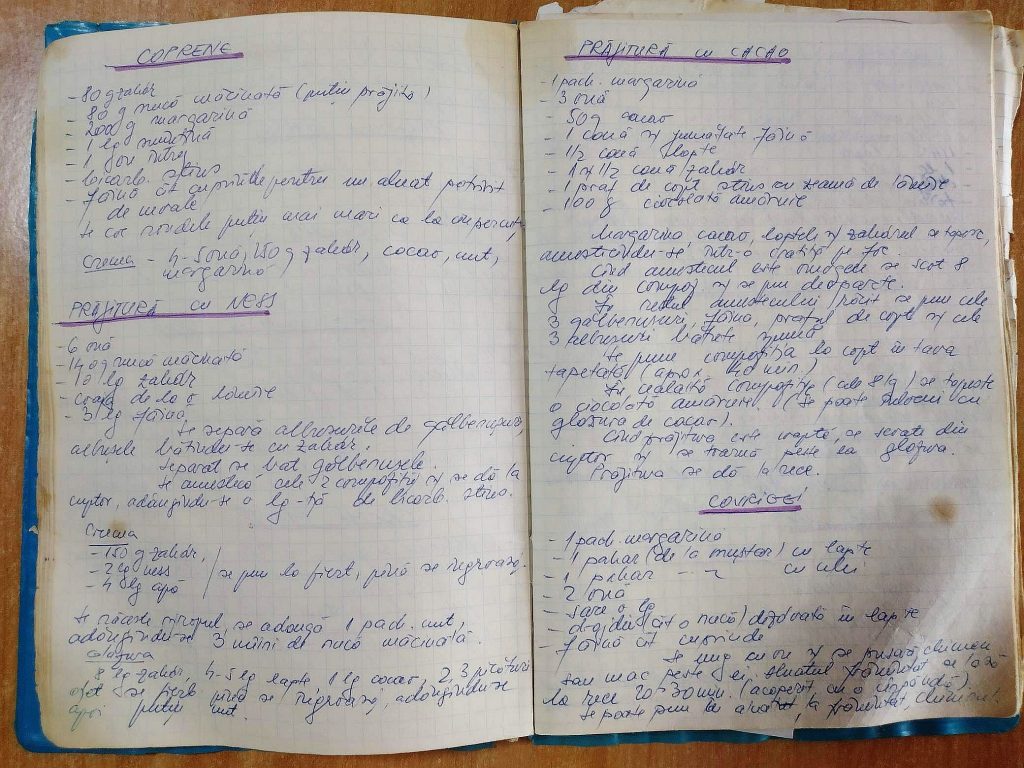 COPRENE
- 80 g zahăr
- 80 g nucă măcinată (puțin prăjită)
- 200 g margarină
- 1 lg smîntînă
- 1 gou întreg
- bicarb. stins
- făină cît cuprinde pentru un aluat potrivit
de moale
Se coc rondele puțin mai mari ca la
Crema - 4-5 ouă, 150 g zahăr, cacao, unt,
margarină
PRĂJITURĂ cu NESS
- 6 ouă
- 140 g nucă măcinată
- 10 lg zahăr
- coaja de la o lămîie
- 3 lg făină
Se separă albușurile de gălbenușuri,
albușele bătîndu-se cu zahăr.
Separat se bat gălbenușele.
Se amestecă cele 2 compoziții și se dă la
cuptor, adăugîndu-se o lg-ță de bicarb. stins.
Crema
- 150 g zahăr,
- 2 lg ness
- 4 lg apă
se pun la fiert, pînă se îngroașă.
Se răcește siropul, se adaugă 1 pach. unt,
adăugîndu-se 3 mîini de nucă măcinată.
Glazura
8 lg zahăr, 4-5 lg lapte, 1 lg cacao, 2, 3 picături
oțet se fierb pînă se îngroașă, adăugîndu-se
apoi puțin unt.
PRĂJITURĂ cu CACAO
- 1 pach. margarină
- 3 ouă
- 50 g cacao
- 1 cană și jumătate făină
- 1/2 cană lapte
- 1 și 1/2 cană zahăr
- 1 praf de copt stins cu zeamă de lămîie
- 100 g ciocolată amăruie
Margarina, cacao, laptele și zahărul se topesc,
amestecîndu-se într-o cratiță pe foc.
Cînd amestecul este omogen se scot 8
lg din compoz. și se pun deoparte.
În restul amestecului răcit se pun cele
3 gălbenușuri, făina, praful de copt și cele
3 albușuri bătute spumă
Se pune compoziția la copt în tava
tapetată (aprox. 40 min.)
În cealaltă compoziție (cele 8 lg) se topește
o ciocolată amăruie. (Se poate înlocui cu
glazura de cacao).
Cînd prăjitura este coaptă, se scoate din
cuptor și se toarnă peste ea glazura.
Prăjitura se dă la rece.
COVRIGEI
- 1 pach. margarină
- 1 pahar (de la muștar) cu lapte
- 1 pahar -- ~ cu ulei
- 2 ouă
- sare o lg
- drojdie (cît o nucă) dizolvată în lapte
- făină cît cuprinde
Se ung cu ou și se presară chimen
sau mac peste ei, aluatul frămîntat se lasă
la rece 20-30 min. (acoperit cu o
Se poate pune în aluat, la frămîntat, chimion!